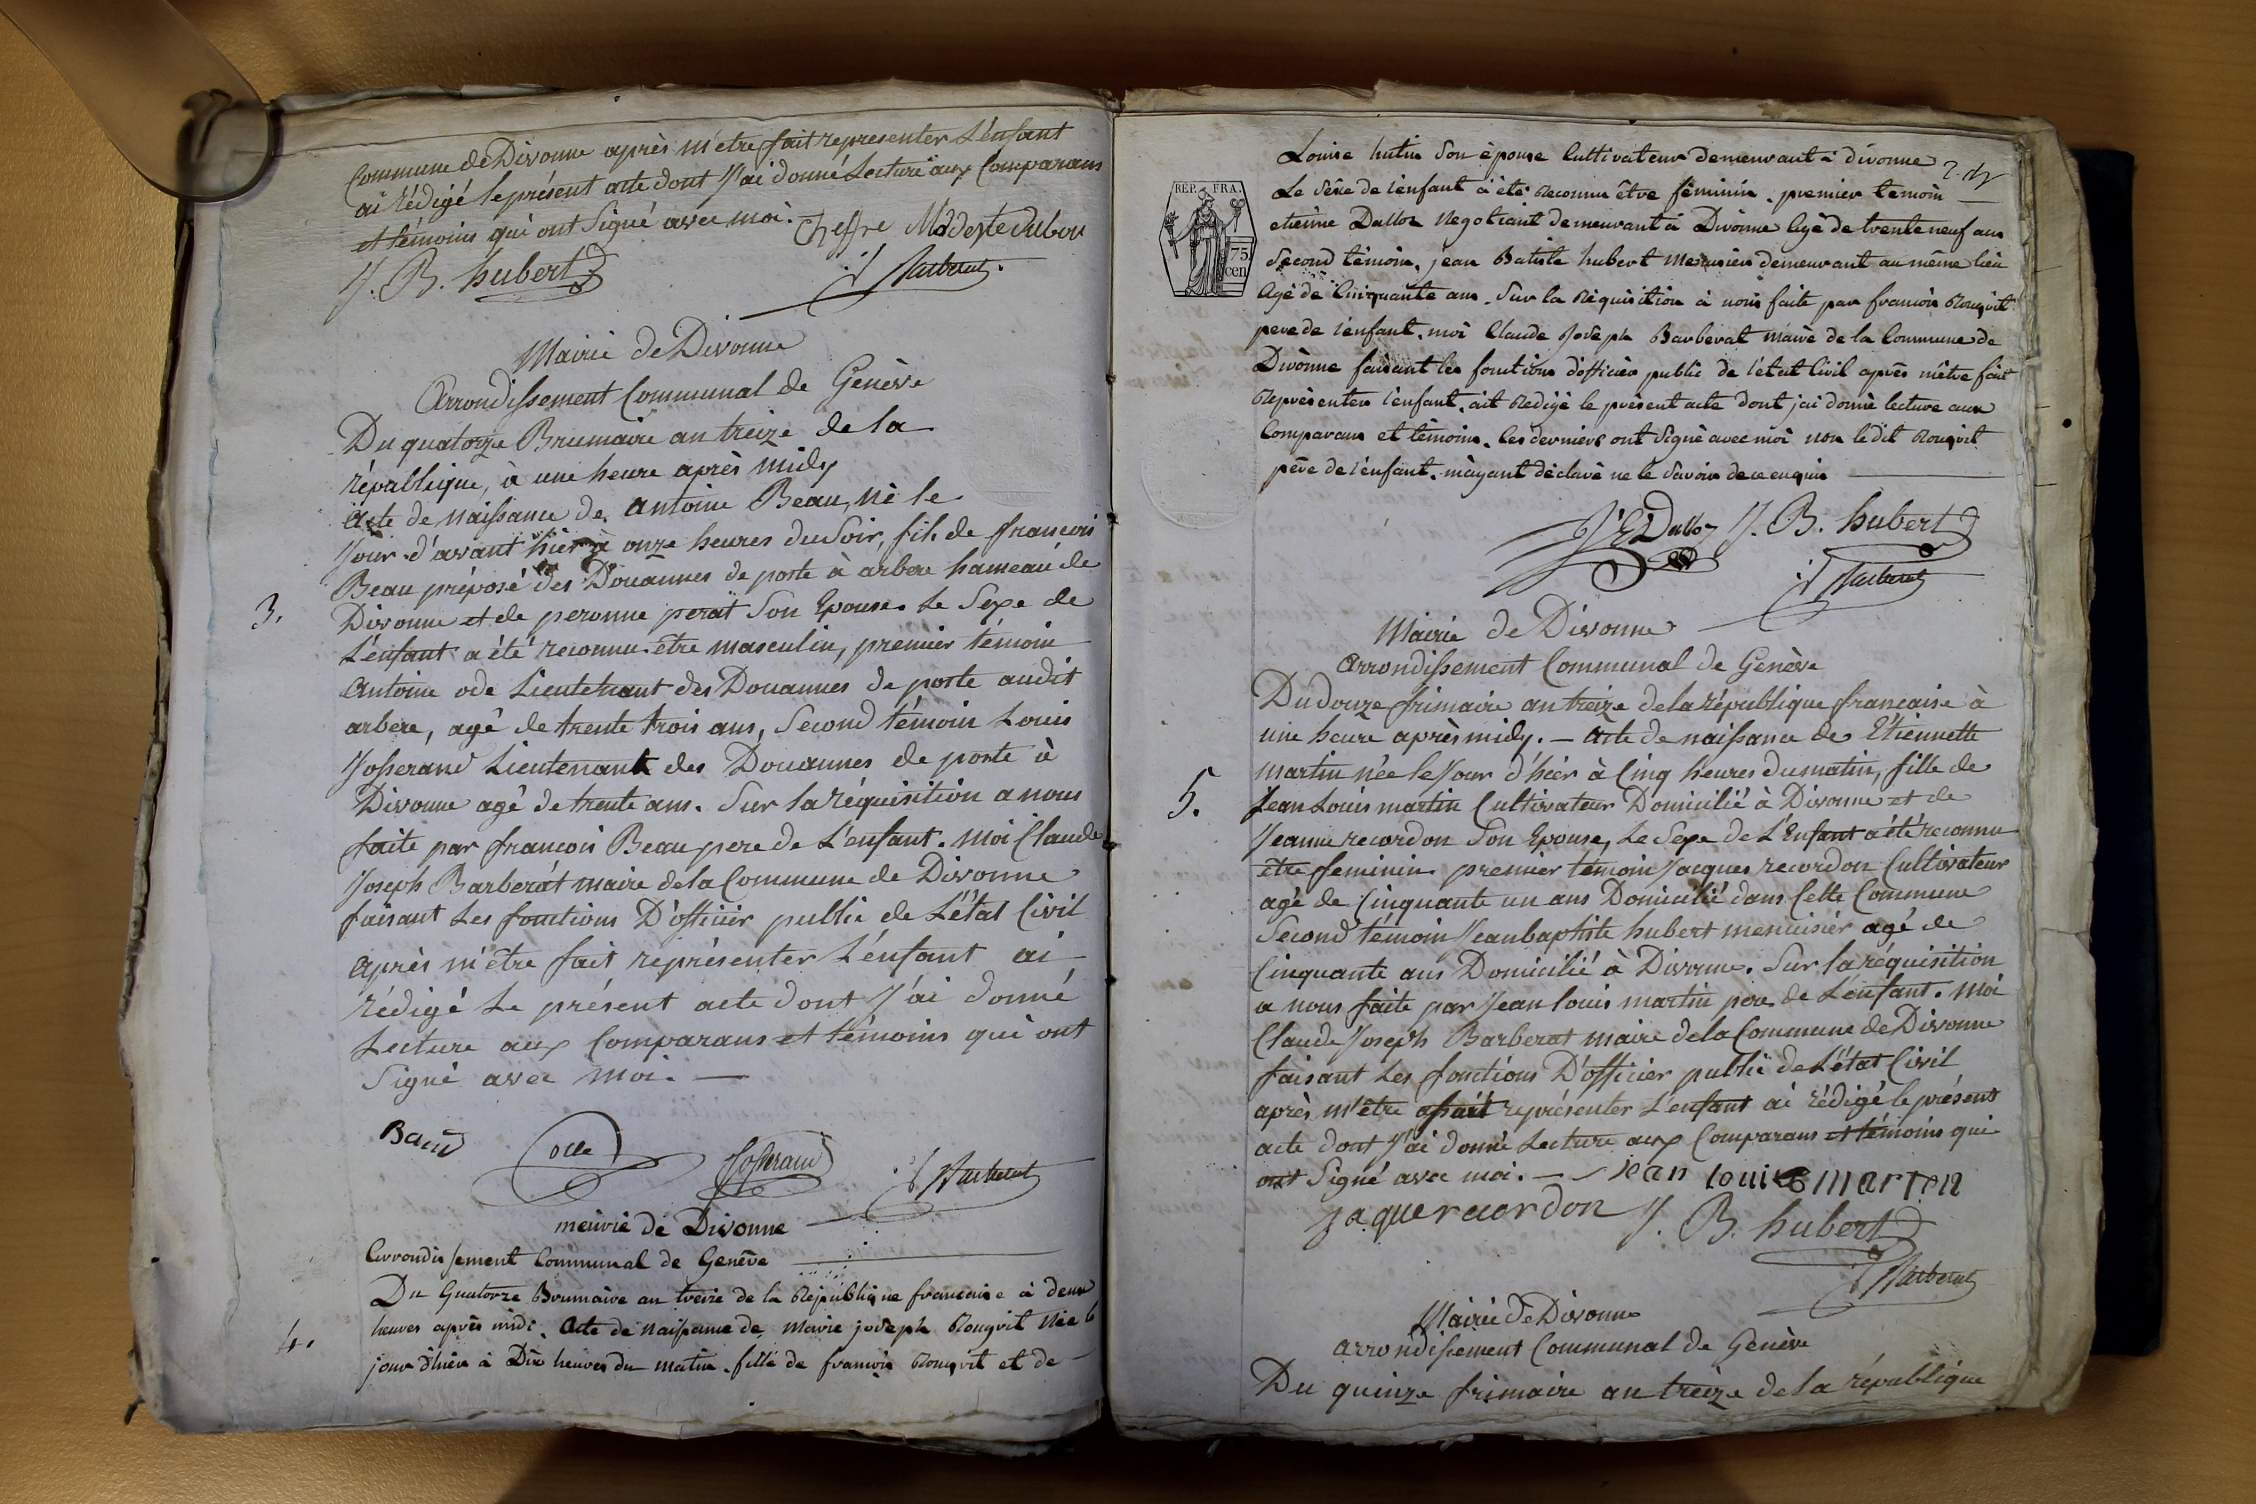 Commune de Divonne après m'etre fait representer L'enfant
ai rédigé le présent acte dont J'ai donné Lecture aux Comparans
et témoins qui ont Signé avec moi. Cheffre Modeste dubou
J. B. hubert Barberat
Mairie de Divonne
Arrondissement Communal de Genève
Du quatorze Brumaire an treize de la
république, à une heure après midy
Acte de naissance de Antoine Beau, né le
Jour d'avant hier à onze heures du Soir, fils de françois
Beau préposé des Douannes de poste à arbere hameau de
3. Divonne et de peronne peraÿ Son Epouse. Le Sexe de
L'enfant a été reconnu être masculin, premier témoin
Antoine ode Lieutenant des Douannes de poste audit
arbere, agé de trente trois ans, Second témoin Louis
Josserand Lieutenant des Douannes de poste à
Divonne agé de trente ans. Sur la réquisition a nous
faite par françois Beau pere de L'enfant. Moi Claude
Joseph Barberat maire de la Commune de Divonne
faisant Les fonctions D'officier public de L'état Civil
Après m'être fait représenter L'enfant ai
rédigé Le présent acte dont J'ai donné
Lecture aux Comparans et témoins qui ont
Signé avec moi.
Josserand Barberat
meirie de Divonne
Arrondissement Communal de Genève
Du Quatorze Brumaire an treize de la République francaise à deux
heures après midi. Acte de Naissance de Marie joseph Rouqvit Née le
4.
jour d'hier à Dix heures du matin. fille de francois Rouqvit et de
Louise hutin Son épouse Cultivateur demeurant à divonne
REP. FRA.
75 cen
Le Sexe de l'enfant à été Reconnu être féminin. premier temoin
etienne Dalloz Negotiant demeurant à Divonne Agé de trente neuf ans
Second témoin. jean Batiste hubert Menusier demeurant au même lieu
Agé de Cinquante ans. Sur la Réquisition à nous faite par francois Rouqvit
pere de l'enfant. moi Claude Joseph Barberat maire de la Commune de
Divonne faisant les fonctions d'officier public de l'état Civil après m'être fait
Représenter l'enfant. ait Redigé le présent acte dont j'ai donné lecture aux
Comparans et témoins. les derniers ont Signé avec moi non ledit Rouqvit
père de l'enfant. m'ayant déclaré ne le Savoir de ce enquis
Dalloz J. B. hubert
Barberat
Mairie de Divonne
Arrondissement Communal de Genève
Du douze frimaire an treize de la république francaise à
une heure après midy. — Acte de naissance de Etiennette
martin née le Jour d'hier à Cinq heures du matin, fille de
5. Jean Louis martin Cultivateur Domicilié à Divonne et de
Jeanne recordon Son Epouse, Le Sexe de L'Enfant a été reconnu
être feminin. premier temoin Jacques recordon Cultivateur
agé de Cinquante un ans Domicilié dans Cette Commune
Second témoin Jean baptiste hubert menuisier agé de
Cinquante ans Domicilié à Divonne. Sur la réquisition
a nous faite par Jean louis martin pere de L'enfant. Moi
Claude Joseph Barberat maire de la Commune de Divonne
faisant Les fonctions D'officier public de L'état Civil
après m'être fait représenter L'enfant ai rédigé le présent
acte dont J'ai donné Lecture aux Comparans et témoins qui
ont Signé avec moi. — Jean louis marten
jaque recordon J. B. hubert
Barberat
Mairie de Divonne
arrondissement Communal de Genève
Du quinze frimaire an treize de la république